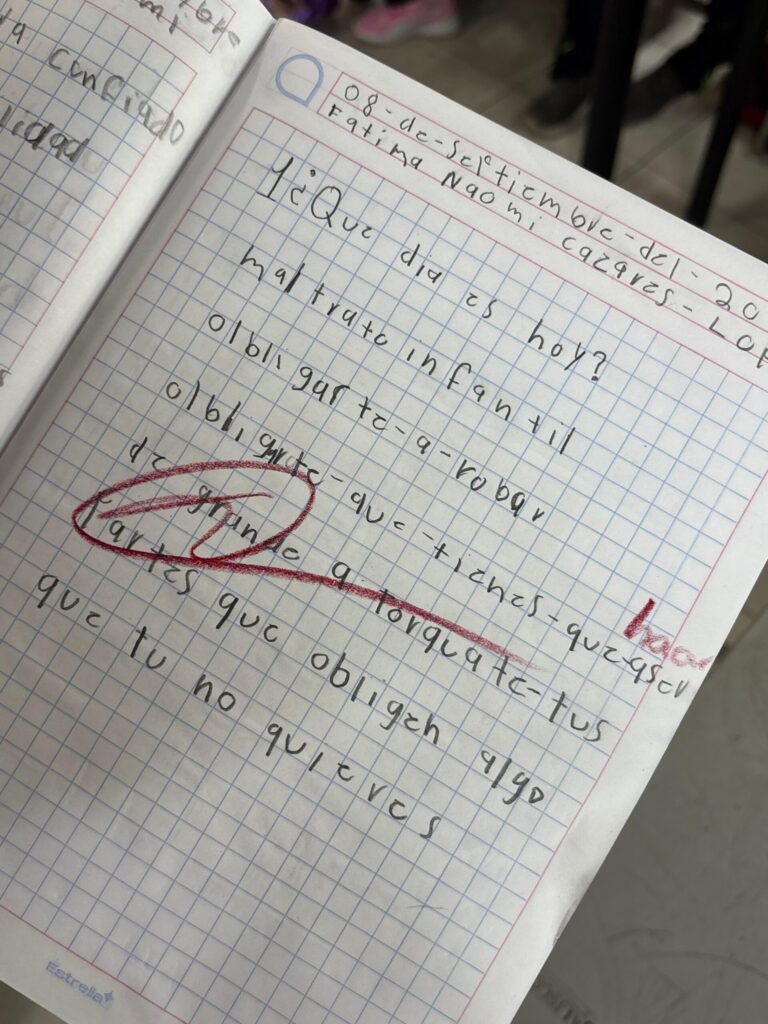 confiado
08-de-septiembre-del-20
Fatima Naomi cazares-LOP
1¿Que dia es hoy?
maltrato infantil
olbligarte-a-robar
olbligarte-que-tienes-que-aser
haa
de grande a torquate-tus
Partes que obligen algo
que tu no quieres
Estrella